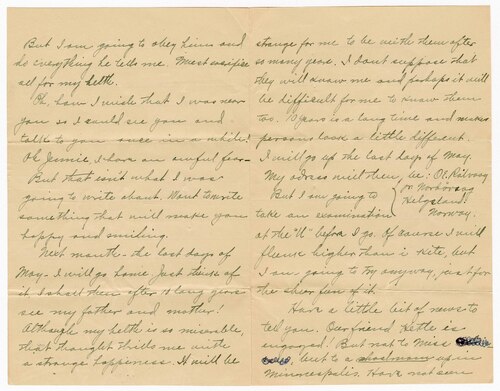 But I am going to obey him and
do everything he tells me. Must sacrifice
all for my helth.
Oh, how I wish that I was near
you so I could see you and
talk to you once in a while!
Oh Jennie I have an awful fear-
But that isn't what I was
going to write about. Want to write
something that will make you
happy and smiling.
Next month - the last days of
May - I will go home. Just think of
it I shall then after 10 long years
see my father and mother!
Although my helth is so miserable,
that thought thrills me with
a strange happiness. It will be
strange for me to be with them after
so many years. I don't suppose that
they will know me and perhaps it will
be difficult for me to know them
too. 10 years is a long time and makes
persons look a little different.
I will go up the last days of May.
My adress will then be:
or
Helgeland
Norway.
But I am going to
take an examination
at the "U" before I go. Of course I will
flunk higher than a kite, but
I am going to try anyway, just for
the sheer fun of it.
Have a little bit of news to
tell you. Our friend Kettle is
engaged! But not to Miss
but to a up in
Minneapolis. Have not seen